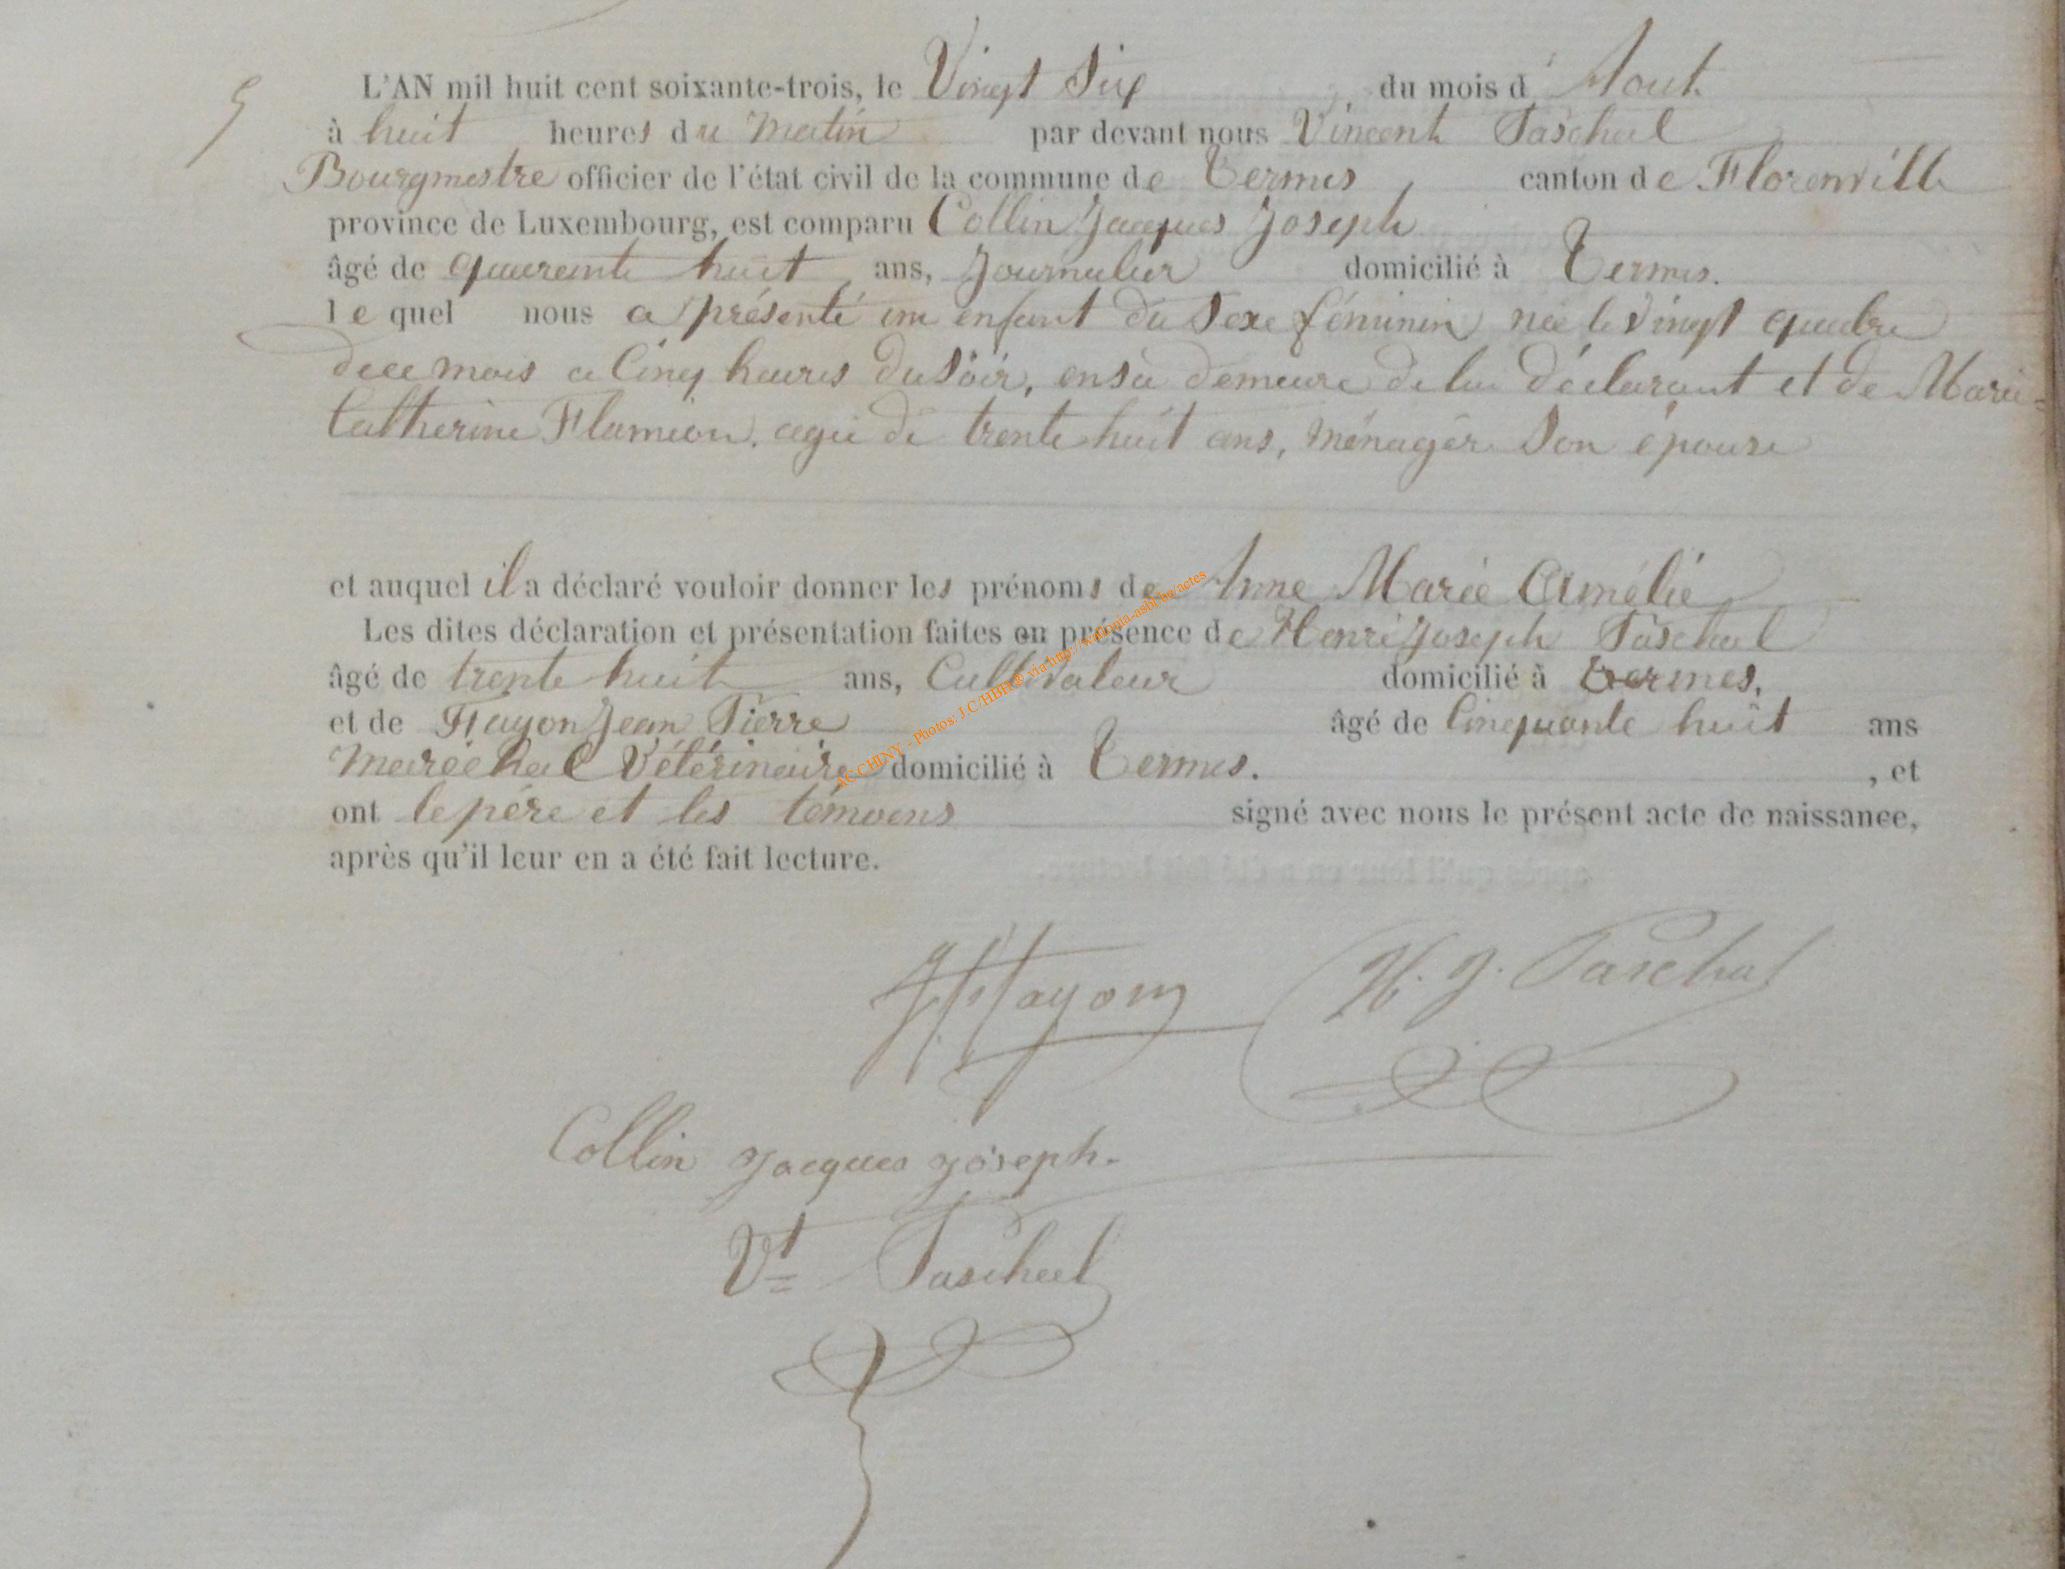 L'AN mil huit cent soixante-trois, le Vingt Six du mois d' Aout
à huit heures du Matin par devant nous Vincent Paschal
Bourgmestre officier de l'état civil de la commune de Termes canton de Florenville
province de Luxembourg, est comparu Collin Jacques Joseph
âgé de quarente huit ans, Journalier domicilié à Termes.
lequel nous a présenté un enfant du Sexe féminin née le Vingt quatre
de ce mois a Cinq heures du Soir, en sa demeure de lui déclarant et de Marie=
Catherine Flamion. agée de trente huit ans, Ménagère Son épouse
et auquel il a déclaré vouloir donner les prénoms de Anne Marie Amélie
Les dites déclaration et présentation faites en présence de Henri Joseph Paschal
âgé de trente huit ans, Cultivateur domicilié à Termes,
et de Hayon Jean Pierre âgé de Cinquante huit ans
Maréchal Vétérinaire domicilié à Termes. , et
ont le père et les témoins signé avec nous le présent acte de naissance,
après qu'il leur en a été fait lecture.
ACCHINY - Photos: J.C/HBH@ via http://wallonia-asbl.be/actes
Hayon H. J. Paschal
Collin Jacques joseph.
Vt Paschal